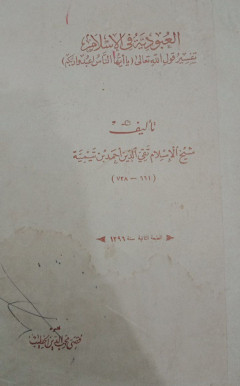 العبودية في الإسلام
تفسير قول الله تعالى (يا أيها الناس اعبدوا ربكم)
تأليف
شيخ الإسلام تقي الدين أحمد بن تيمية
(٦٦١ - ٧٢٨)
الطبعة الثانية سنة ١٣٩٦
قصي محب الدين الخطيب